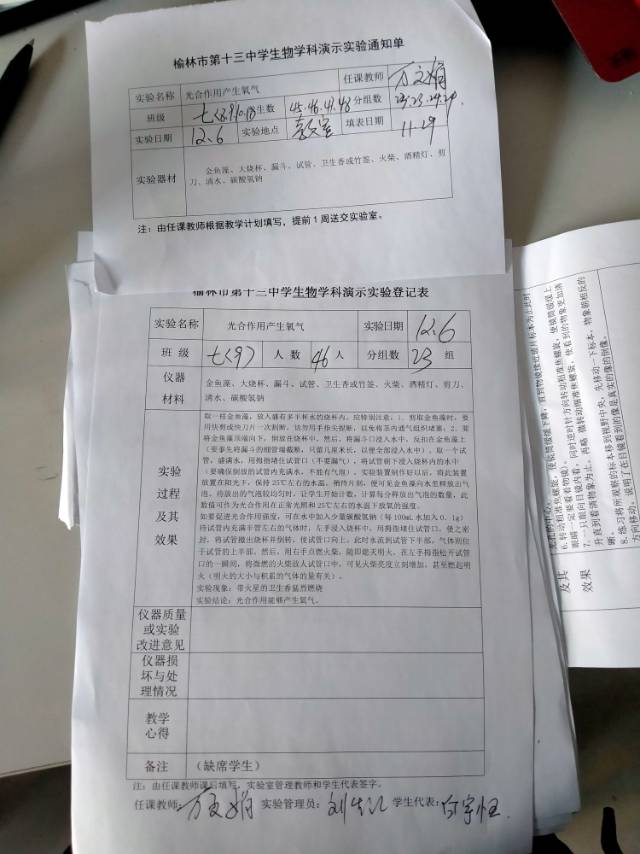 榆林市第十三中学生物学科演示实验通知单
实验名称 光合作用产生氧气 任课教师
班级 生数 45.46.47.48 分组数 23.23.24.24
实验日期 12.6 实验地点 教室 填表日期 11.29
实验器材 金鱼藻、大烧杯、漏斗、试管、卫生香或竹签、火柴、酒精灯、剪
刀、滴水、碳酸氢钠
注：由任课教师根据教学计划填写，提前1周送交实验室。
榆林市第十三中学生物学科演示实验登记表
实验名称 光合作用产生氧气 实验日期 12.6
班 级 七(9) 人 数 46人 分组数 23 组
仪器
材料
金鱼藻、大烧杯、漏斗、试管、卫生香或竹签、火柴、酒精灯、剪刀、
滴水、碳酸氢钠
实验
过程
及其
效果
取一枝金鱼藻，放入盛有多半杯水的烧杯内。应特别注意：1. 剪取金鱼藻时，要
用快剪或快刀片一次割断，切勿用手指尖捏断，以免将茎内通气组织堵塞；2. 要
将金鱼藻顶端向下，倒放在烧杯中，然后，将漏斗口浸入水中，反扣在金鱼藻上
（要事先将漏斗的细管端截断，只留几厘米长，以便全部浸入水中）。取一个试
管，盛满水，用拇指堵住试管口（不要漏气），将试管倒下浸入烧杯内的水中
（要确保倒放的试管内充满水，不能有气泡）。实验装置制作好以后，将此装置
放置在阳光下，保持25℃左右的水温，稍待片刻，便可见金鱼藻向水里释放出气
泡。待放出的气泡较均匀时，让学生开始计数，计算每分释放出气泡的数量，此
数值可作为光合作用在正常光照和25℃左右的水温下放氧的强度。
如要促进光合作用强度，可在水中加入少量碳酸氢钠（每100mL水加入0.1g）
待试管内充满半管左右的气体时，左手浸入烧杯中，用拇指堵住试管口，使之密
封，将试管撤出烧杯并倒转，使试管口向上，此时水流到试管下半部，气体则位
于试管的上半部。然后，用右手点燃火柴，随即熄灭明火，在左手拇指松开试管
口的一瞬间，将微燃的火柴放入试管口中，可见火柴亮度立刻增加，甚至燃起明
火（明火的大小与积累的气体的量有关）。
实验现象：带火星的卫生香猛烈燃烧
实验结论：光合作用能够产生氧气。
仪器质量
或实验
改进意见
仪器损
坏与处
理情况
教学
心得
备注 （缺席学生）
注：由任课教师课后填写，实验室管理教师和学生代表签字。
任课教师: 实验管理员： 学生代表:
及其
效果
6. 转动粗准焦螺旋，使镜筒缓缓下降，直到物镜接近玻片标本为止此时
眼睛一定要看着物镜）。
7. 只眼向目镜内看，同时逆时针方向转动粗准焦螺旋，使镜筒缓缓上
升直到看清物象为止。再略 微转动细准焦螺旋，使看到的物象更加清
晰。
8. 练习将所观察的目标移到视野中央，先移动一下标本，物象朝相反的
方向移动，说明了在目镜看到的像是真实的像的倒像。